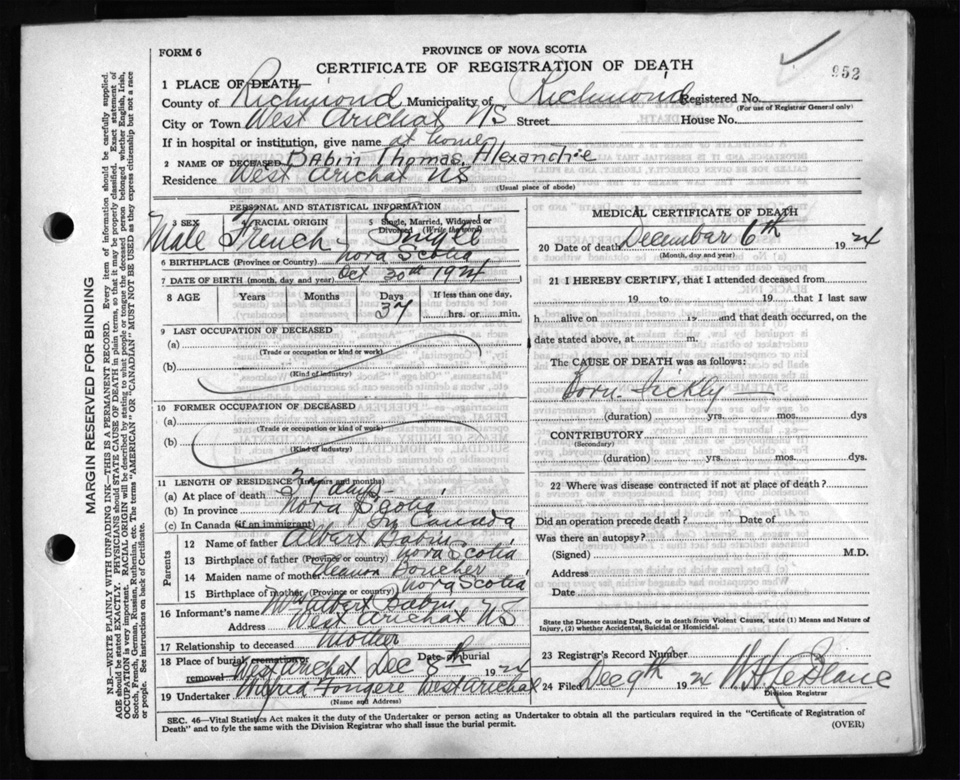 FORM 6
PROVINCE OF NOVA SCOTIA
CERTIFICATE OF REGISTRATION OF DEATH
952
1 PLACE OF DEATH—
County of Richmond Municipality of Richmond Registered No.
(For use of Registrar General only)
City or Town West Arichat NS Street House No.
If in hospital or institution, give name at home
2 NAME OF DECEASED Babin Thomas Alexandre
Residence West Arichat NS
(Usual place of abode)
PERSONAL AND STATISTICAL INFORMATION
3 SEX 4 RACIAL ORIGIN 5 Single, Married, Widowed or Divorced (Write the word)
Male French Single
6 BIRTHPLACE (Province or Country) Nova Scotia
7 DATE OF BIRTH (month, day and year) Oct 30th 1924
8 AGE Years Months Days If less than one day,
37 hrs. or min.
9 LAST OCCUPATION OF DECEASED
(a)
(Trade or occupation or kind or work)
(b)
(Kind of industry)
10 FORMER OCCUPATION OF DECEASED
(a)
(Trade or occupation or kind or work)
(b)
(Kind of industry)
11 LENGTH OF RESIDENCE (In years and months)
(a) At place of death 37 days
(b) In province Nova Scotia
(c) In Canada (if an immigrant) In Canada
Parents
12 Name of father Albert Babin
13 Birthplace of father (Province or country) Nova Scotia
14 Maiden name of mother Boucher
15 Birthplace of mother (Province or country) Nova Scotia
16 Informant's name Albert Babin
Address West Arichat NS
17 Relationship to deceased Mother
18 Place of burial, cremation or removal West Arichat Date of burial Dec 8th 1924
19 Undertaker Fougere West Arichat
(Name and Address)
MEDICAL CERTIFICATE OF DEATH
20 Date of death December 6th 1924
(Month, day and year)
21 I HEREBY CERTIFY, that I attended deceased from
19 to 19 that I last saw
h alive on 19 and that death occurred, on the
date stated above, at m.
The CAUSE OF DEATH was as follows:
Born Sickly —
(duration) yrs. mos. dys
CONTRIBUTORY
(Secondary)
(duration) yrs. mos. dys
22 Where was disease contracted if not at place of death?
Did an operation precede death? Date of
Was there an autopsy?
(Signed) M.D.
Address
Date
State the Disease causing Death, or in death from Violent Causes, state (1) Means and Nature of Injury, (2) whether Accidental, Suicidal or Homicidal.
23 Registrar's Record Number
24 Filed Dec 9th 1924 W H LeBlanc
Division Registrar
SEC. 46—Vital Statistics Act makes it the duty of the Undertaker or person acting as Undertaker to obtain all the particulars required in the "Certificate of Registration of
Death" and to fyle the same with the Division Registrar who shall issue the burial permit.
(OVER)
MARGIN RESERVED FOR BINDING
N.B.—WRITE PLAINLY WITH UNFADING INK—THIS IS A PERMANENT RECORD. Every item of information should be carefully supplied.
AGE should be stated EXACTLY. PHYSICIANS should STATE CAUSE OF DEATH in plain terms, so that it may be properly classified. Exact statement of
OCCUPATION is very important. RACIAL ORIGIN will be described by stating to what people or tongue the deceased person belonged whether English, Irish,
Scotch, French, German, Russian, Ruthenian, etc. The terms "AMERICAN" or "CANADIAN" MUST NOT BE USED as they express citizenship but not a race
or people. See instructions on back of Certificate.